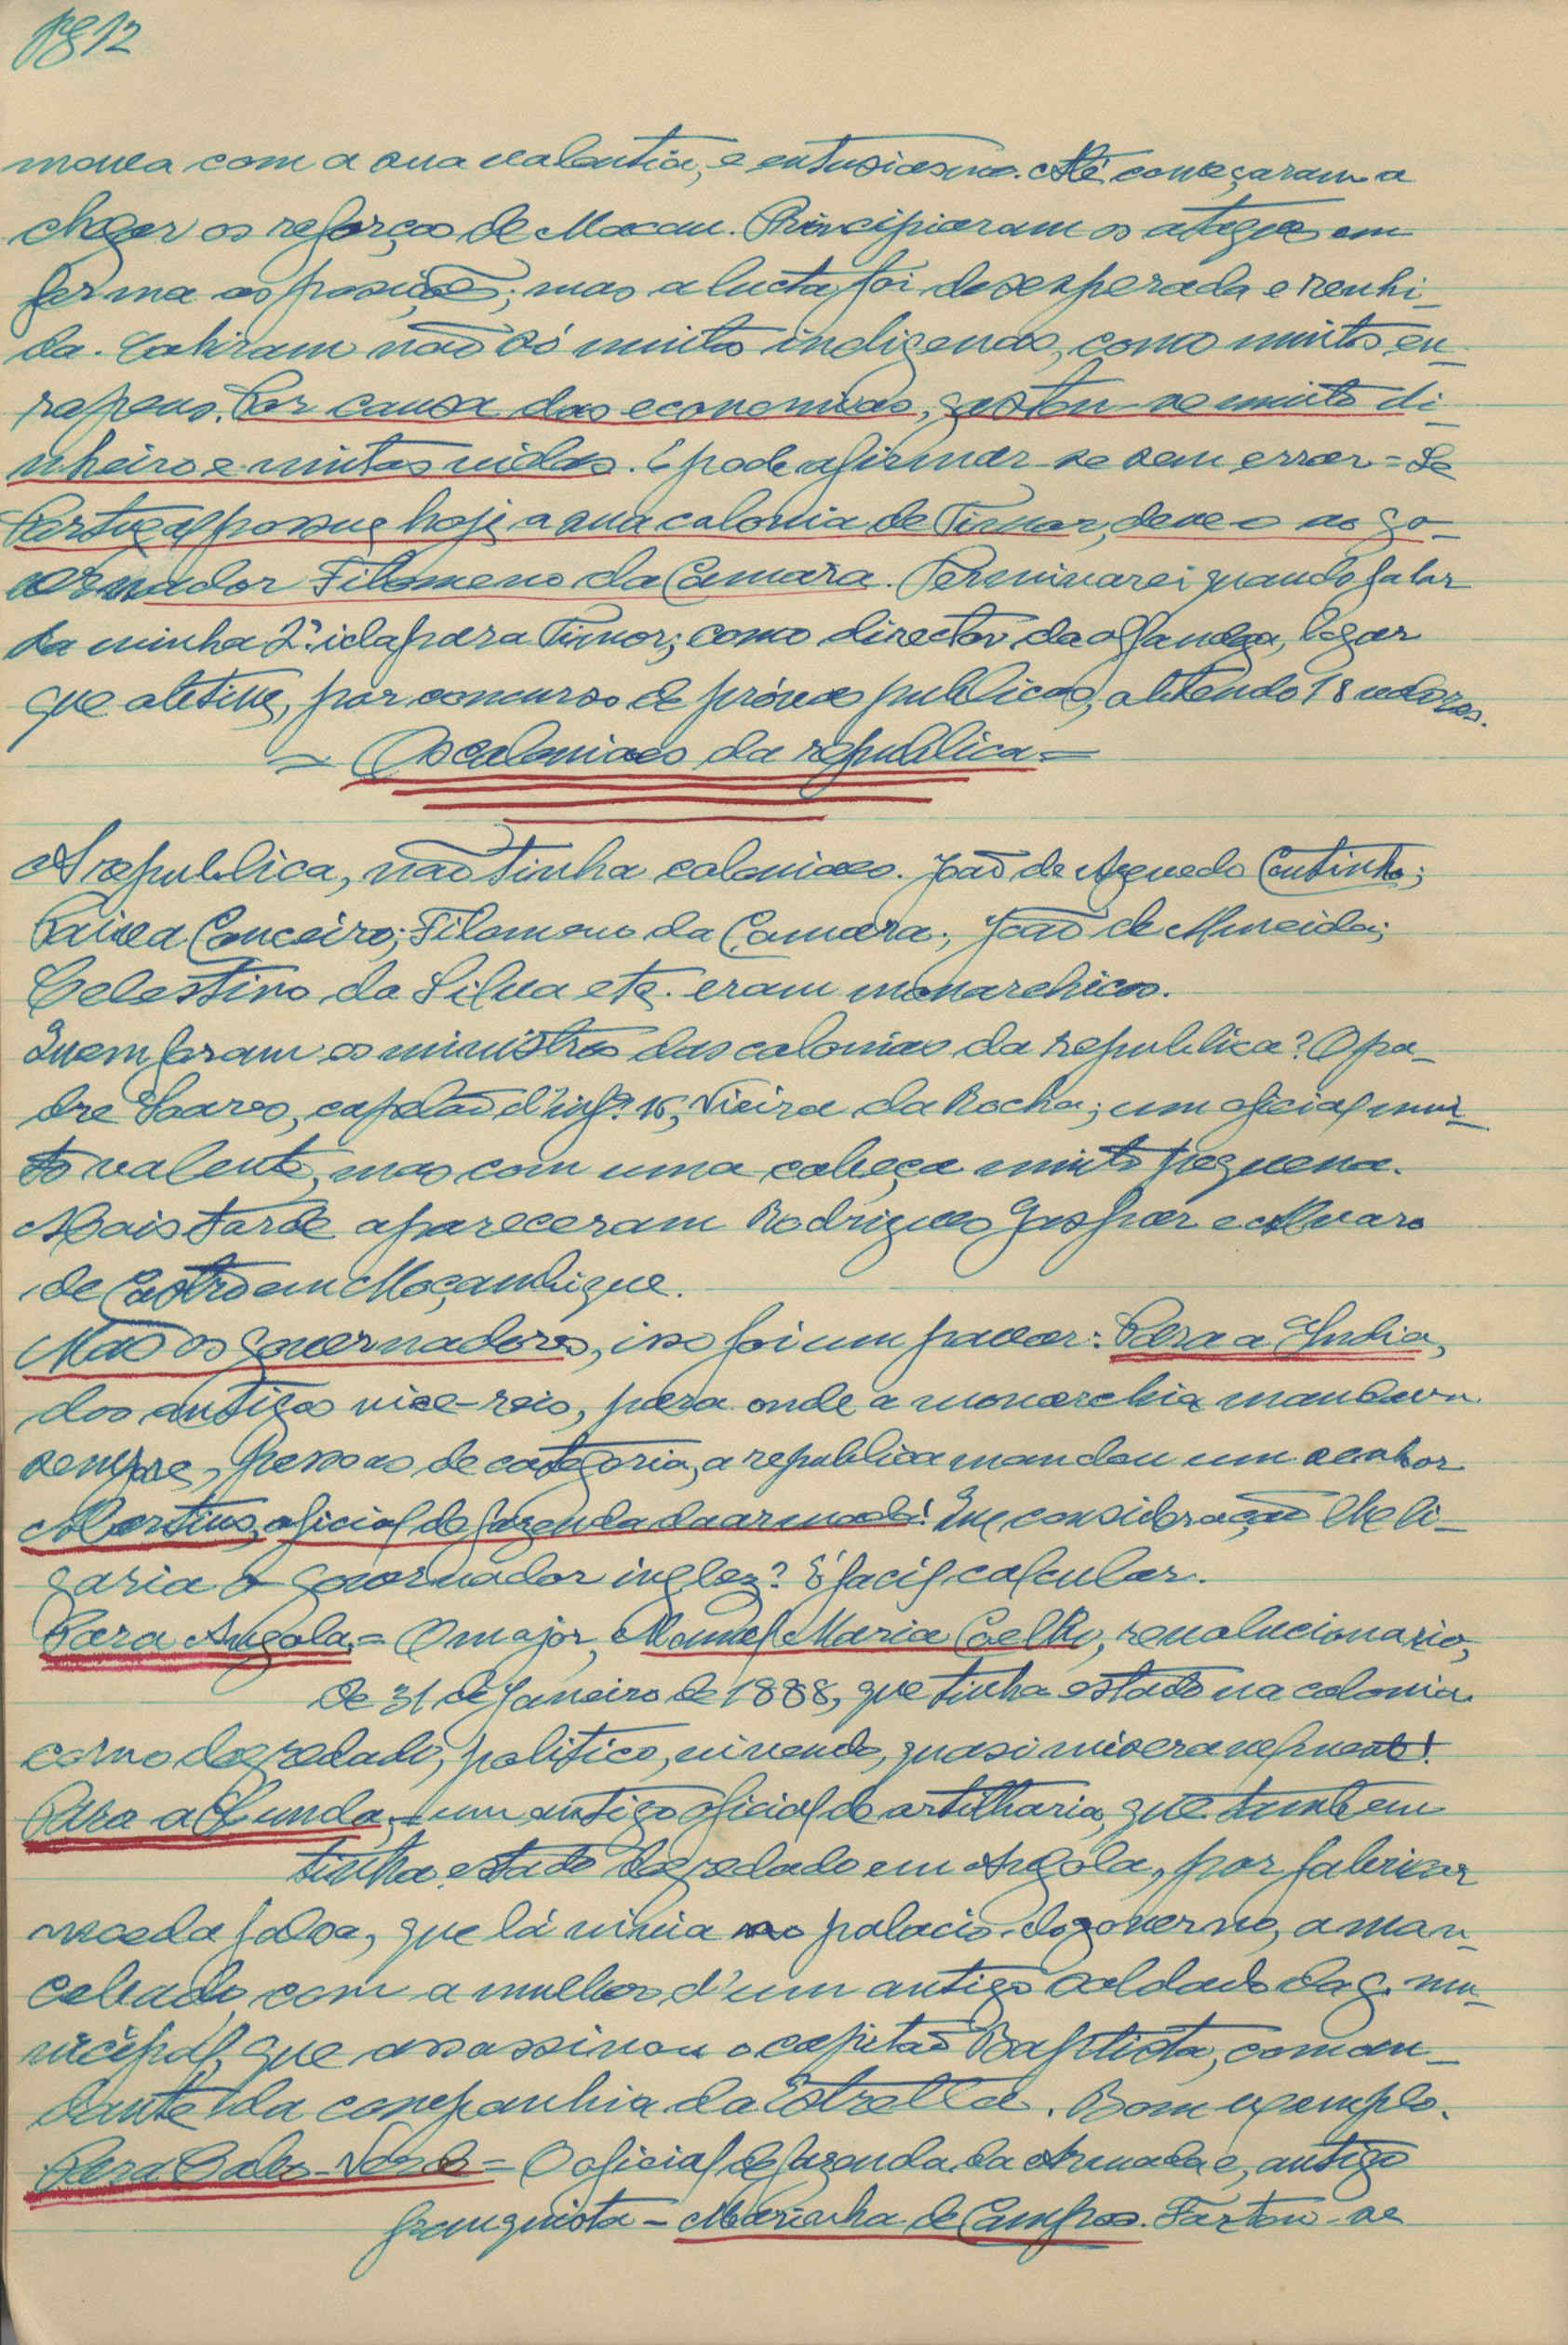 pg 12
mouca com a sua valentia, e entusiasmo. Até começaram a
chegar os reforços de Macau. Principiaram os ataques em
forma as posições; mas a lucta foi desesperada e renhi-
da. Cahiram não só muitos indigenas, como muitos eu-
ropeus. Por causa das economias, gastou-se muito di-
nheiro e muitas vidas. E pode afirmar-se sem errar = Se
Portugal possue hoje a sua colonia de Timor, deve-o ao go-
vernador Filomeno da Camara. Terminarei quando falar
da minha 2ª ida para Timor; como director da alfandega, logar
que obtive, por concurso de próvas publicas, obtendo 18 valores.
= Os coloniaes da republica =
A republica, não tinha coloniaes. João de Azevedo Coutinho;
Paiva Conceiro; Filomeno da Camara; João de Almeida;
Celestino da Silva etc. eram monarchicos.
Quem foram os ministros das colonias da republica? O pa-
dre Soares, capelão d'infª 16, Vieira da Rocha; um oficial mui-
to valente, mas com uma cabeça muito pequena.
Mais tarde apareceram Rodrigues Gaspar e Alvaro
de Castro em Moçambique.
Mas os governadores, isso foi um pavor: Para a India,
dos antigos vice-reis, para onde a monarchia mandava
sempre, pessoas de categoria, a republica mandou um senhor
Martins, oficial de fazenda da armada! Que consideração lhe li-
garia o governador inglez? É facil calcular.
Para Angola = O major, Manuel Maria Coelho, revolucionario,
de 31 de Janeiro de 1888, que tinha estado na colonia
como degredado, politico, vivendo, quasi miseravelmente!
Para a Lunda, - um antigo oficial de artilharia, que tambem
tinha estado degredado em Angola, por fabricar
moeda falsa, que lá vivia no palacio do governo, aman-
cebado com a mulher d'um antigo soldado da g. mu-
nicipal, que assassinou o capitão Baptista, coman-
dante da companhia da Estrella. Bom exemplo.
Para Cabo-Verde = O oficial de fazenda da Armada e, antigo
franquista - Marinha de Campos. Fartou-se